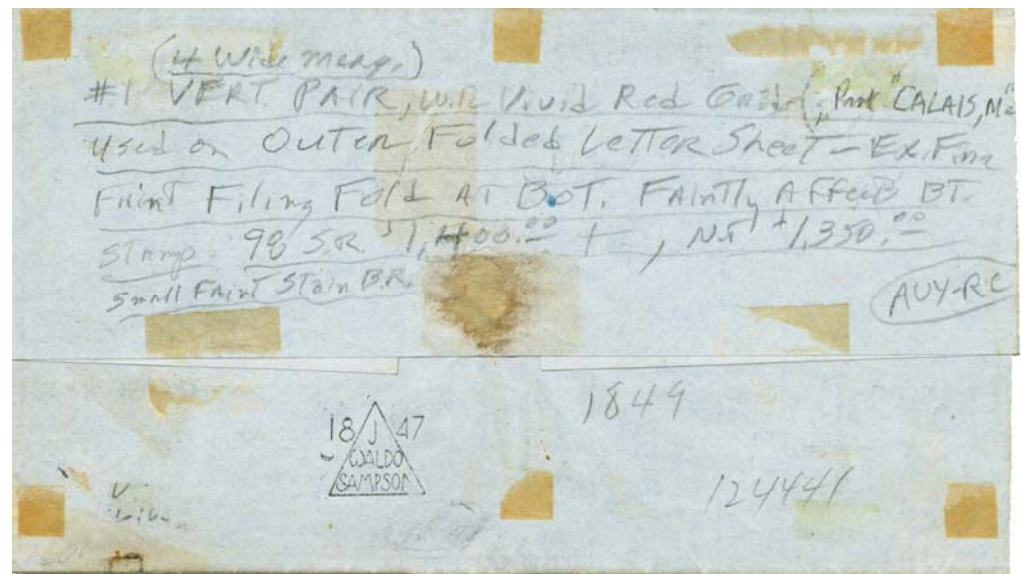 (4 Wide Marg.)
#1 VERT PAIR, Vivid Red "CALAIS, Me"
used on OUTER Folded Letter Sheet – Ex. Fine
Faint Filing Fold AT BOT. FAintly Affects BT.
Stamp. 98 S.R. 1,400.00 + , 1,350.00
Small FAint STain B.R.
AUY-RC
1849
18 J 47
WALDO
SAMPSON
124441